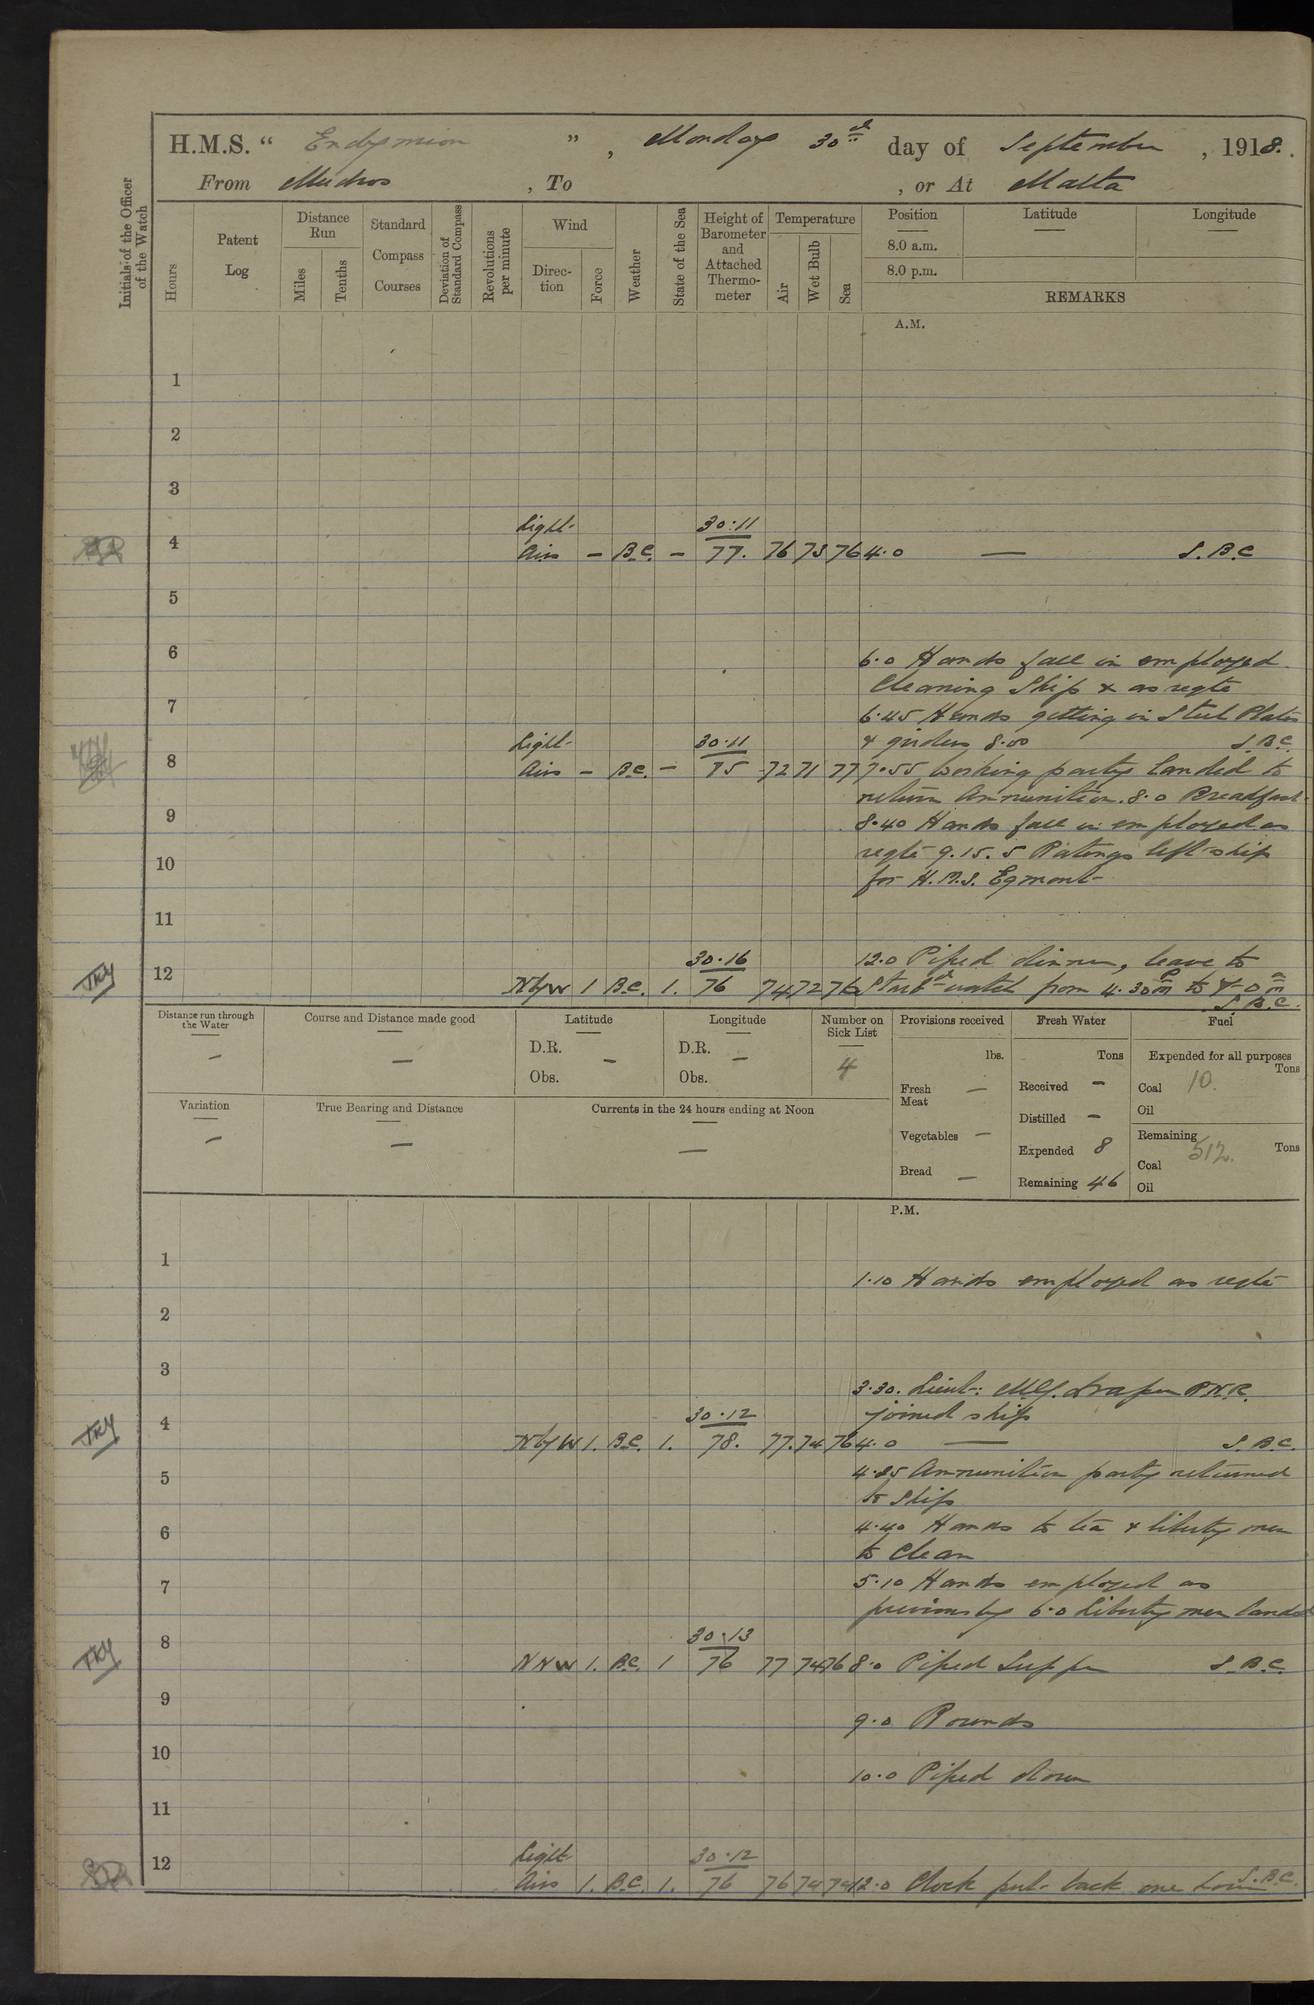 H.M.S. “ Endymion ” , Monday 30th day of September , 1918.
From Mudros , To , or At Malta
Initials of the Officer of the Watch
Hours
Patent Log
Distance Run
Miles
Tenths
Standard Compass Courses
Deviation of Standard Compass
Revolutions per minute
Wind
Direction
Force
Weather
State of the Sea
Height of Barometer and Attached Thermometer
Temperature
Air
Wet Bulb
Sea
Position
Latitude
Longitude
8.0 a.m.
8.0 p.m.
REMARKS
A.M.
1
2
3
Light 30.11
4 Airs – B.C. – 77. 76 73 76 4.0 — S.B.C
5
6
6.0 Hands fall in employed
Cleaning Ship & as reqte
7
6.45 Hands getting in Steel Plates
Light 30.11 & girders 8.00 S.B.C.
8 Airs – B.C. – 75 72 71 77 7.55 Working party landed to
return Ammunition. 8.0 Breadfast
9
8.40 Hands fall in employed as
10 reqte 9.15. 5 Ratings left ship
for H.M.S. Egmont
11
30.16 12.0 Piped dinner, leave to
12 NbyW 1 B.C. 1. 76 74 72 76 Starbd watch from 4.30pm to 7.0am
S.B.C.
Distance run through the Water
–
Course and Distance made good
—
Latitude
D.R. –
Obs.
Longitude
D.R. –
Obs.
Number on Sick List
4
Variation
–
True Bearing and Distance
—
Currents in the 24 hours ending at Noon
—
Provisions received
lbs.
Fresh Meat –
Vegetables –
Bread –
Fresh Water
Tons
Received –
Distilled –
Expended 8
Remaining 46
Fuel
Expended for all purposes
Tons
Coal 10.
Oil
Remaining
Tons
Coal 512.
Oil
P.M.
1
1.10 Hands employed as reqte
2
3
3.30. Lieut: Draper R.N.R.
30.12 joined ship
4 NbyW 1. B.C. 1. 78. 77. 74 76 4.0 — S.B.C.
5 Ammunition party returned
to Ship
6 4.40 Hands to tea & liberty men
to Clean
7 5.10 Hands employed as
previously 6.0 Liberty men landed
30.13
8 NNW 1. B.C. 1 76 77 74 76 8.0 Piped Supper S.B.C.
9
9.0 Rounds
10
10.0 Piped down
11
Light 30.12
12 Airs 1. B.C. 1. 76 76 74 74 12.0 Clock put back one hour S.B.C.